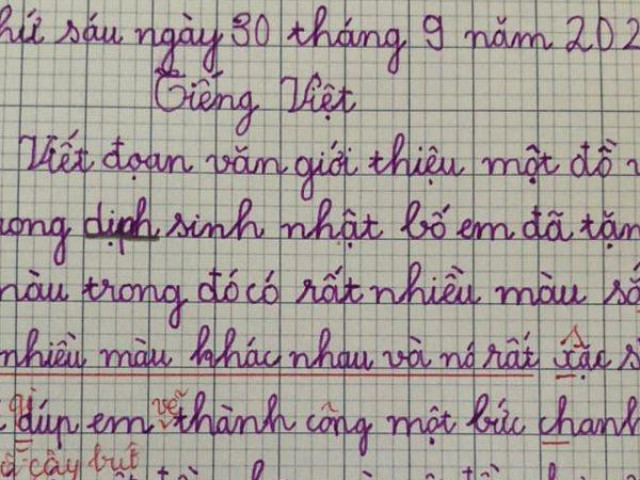 hứ sáu ngày 30 tháng 9 năm 202
Tiếng Việt
Viết đoạn văn giới thiệu một đồ v
ong dịph sinh nhật bố em đã tặn
màu trong đó có rất nhiều màu sắ
nhiều màu khác nhau và nó rất xặc s
gi dúp em vẽ thành công một bức chanh
cây bút